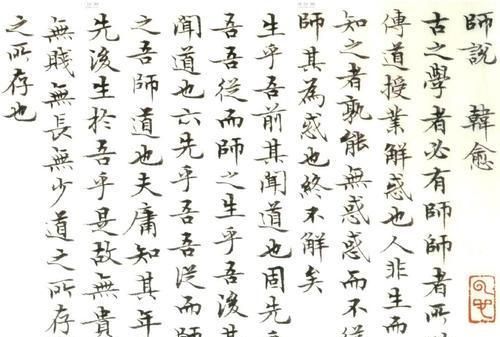 師說 韓愈
古之學者必有師師者所
傳道授業解惑也人非生而
知之者孰能無惑惑而不從
師其為惑也終不解矣
生乎吾前其聞道也固先
吾吾從而師之生乎吾後其
聞道也亦先乎吾吾從而師
之吾師道也夫庸知其年
先後生於吾乎是故無貴
無賤無長無少道之所存
之所存也